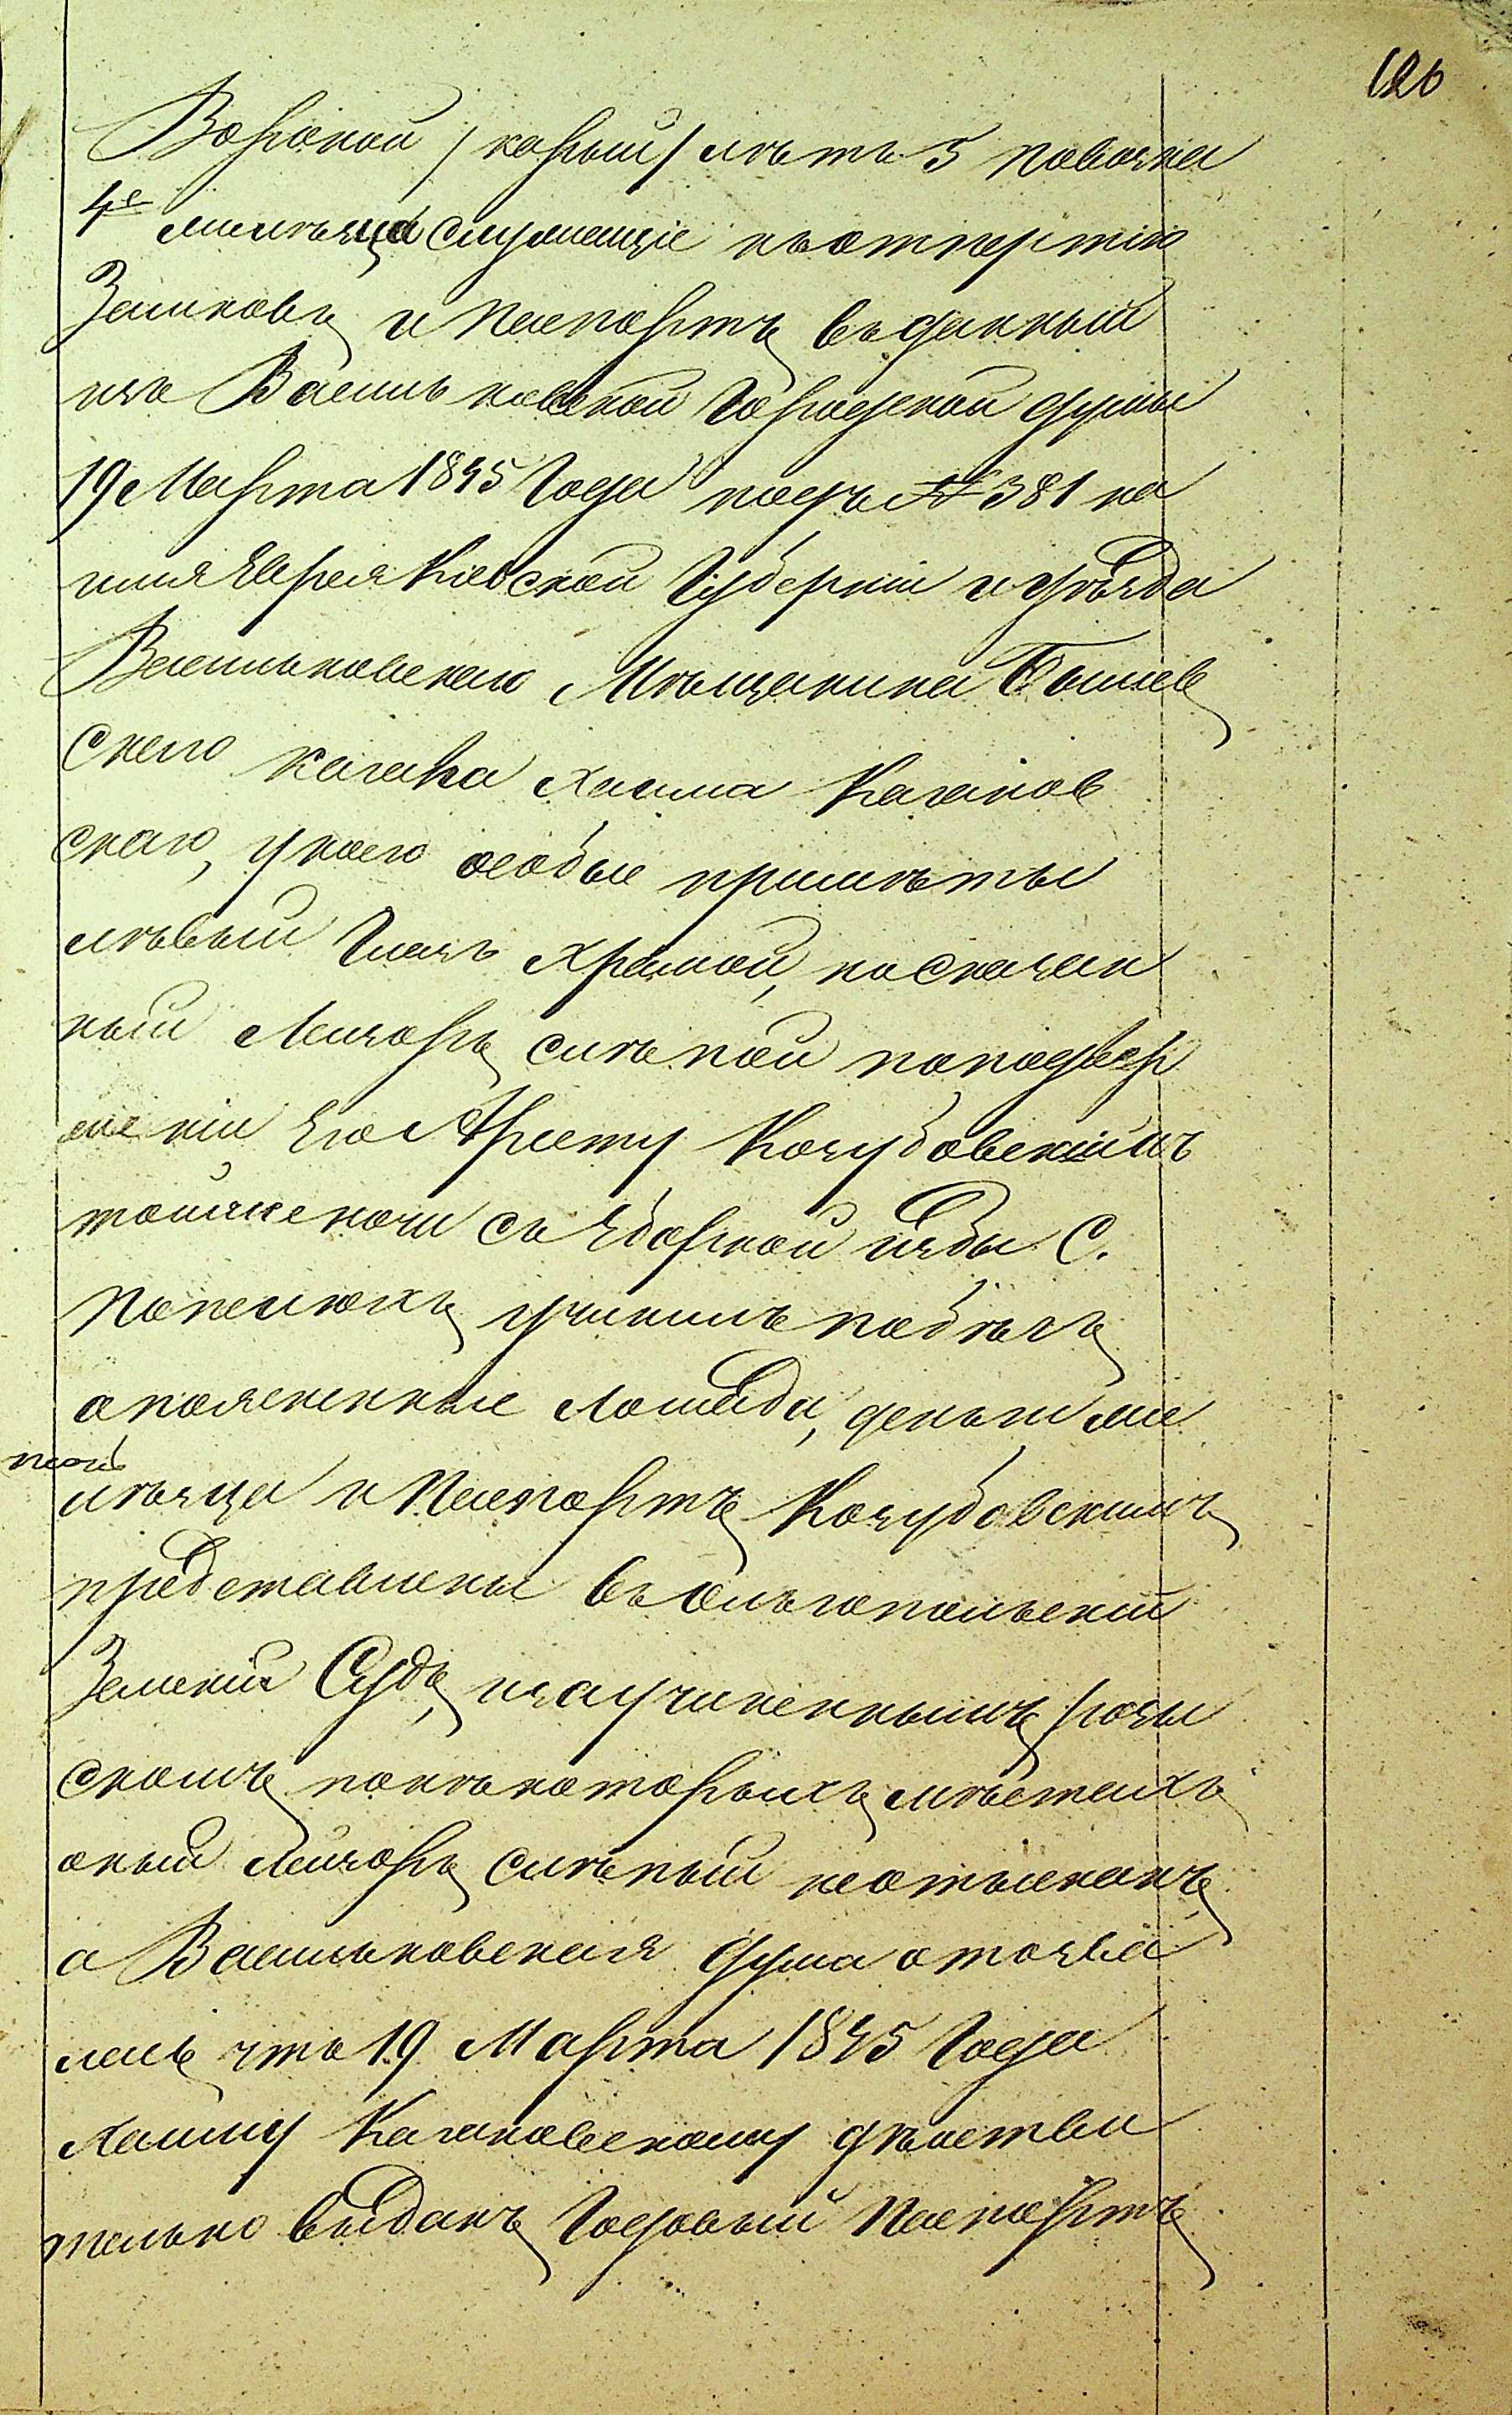 126
Вороной / карый / лѣтъ 5 повозка
4е
служащіе къ отпертію
Замковъ и Паспортъ выданный
изъ Васильковской Городской думы
19 Марта 1845 Года подъ № 381 на
имя Еврея Кіевской Губерніи и уѣзда
Васильковскаго Мѣщанина
скаго кагала Хаима Каганов
скаго, у коего особые примѣты
лѣвый Глазъ Храмой, но сказан
ный Лейзоръ слѣпой по подвер
женіи Его Аресту Козубовскимъ
тойже ночи съ Зборной избы С.
Попелюхъ учинилъ побѣгъ
а поясненные Лошади, деньги
и Паспортъ Козубовскимъ
представлены въ Ольгопольскій
Земскій Судъ, изъ учиненнымъ розы
скомъ по нѣкоторыхъ мѣстахъ
оный Лейзоръ слѣпый неотысканъ
а Васильковская дума отозва
лась что 19 Марта 1845 Года
Хаиму Кагановскому дѣйстви
тельно выданъ Годовый Паспортъ